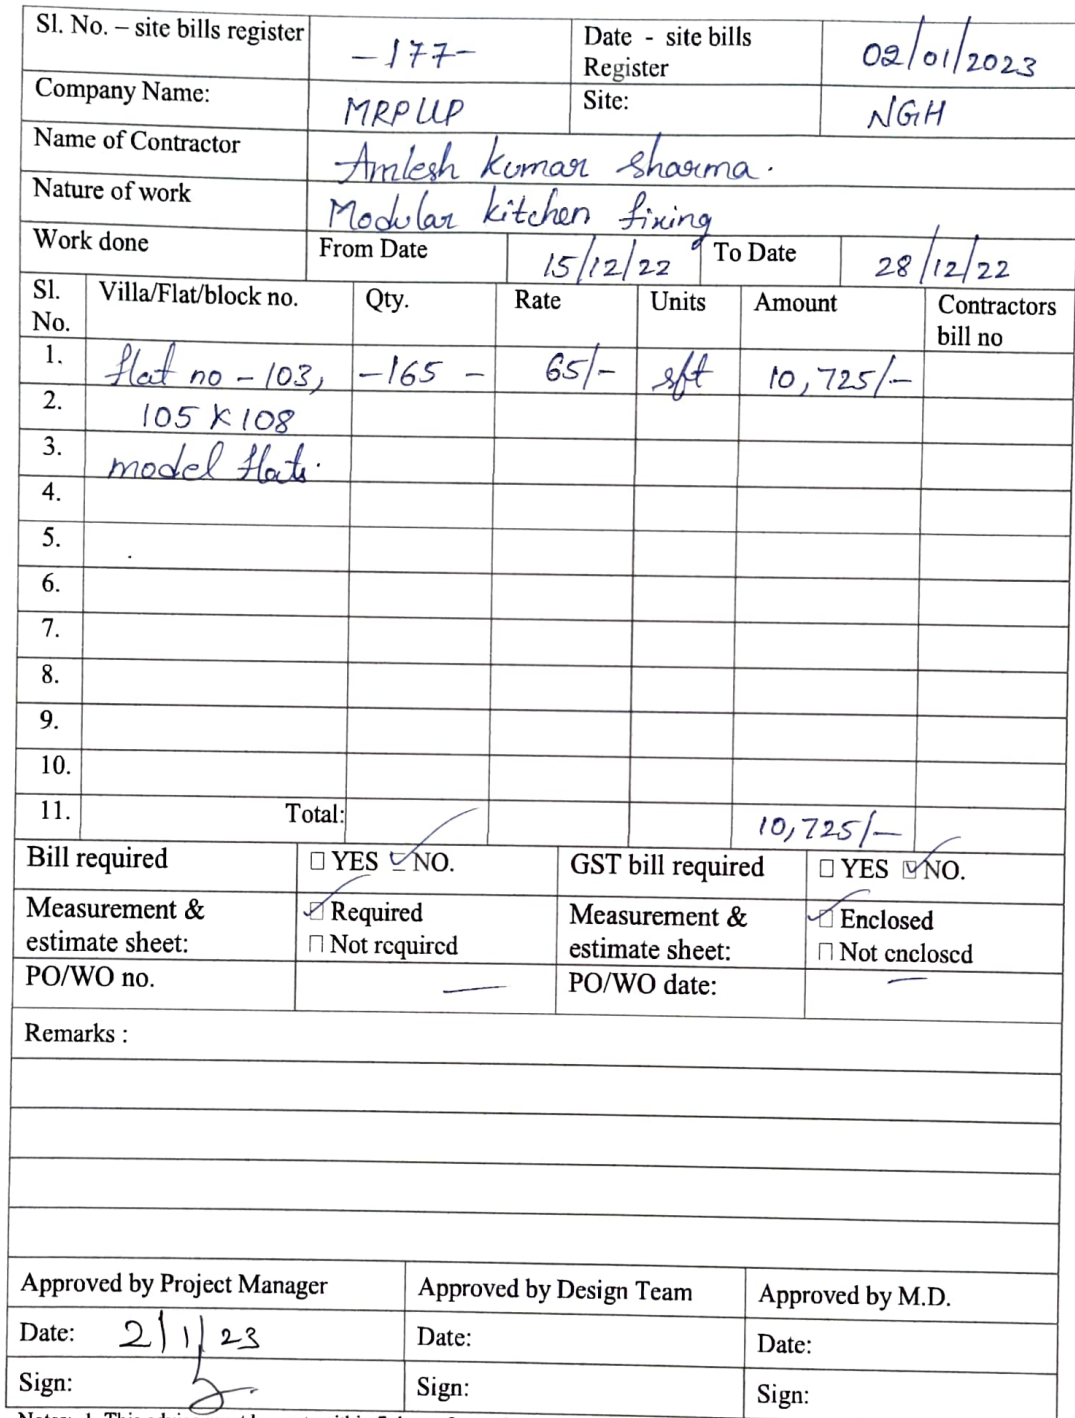 Sl. No. – site bills register -177- Date - site bills Register 02/01/2023
Company Name: MRPLLP Site: NGH
Name of Contractor Amlesh kumar sharma.
Nature of work Modular kitchen fixing
Work done From Date 15/12/22 To Date 28/12/22
Sl. No. Villa/Flat/block no. Qty. Rate Units Amount Contractors bill no
1. flat no - 103, -165 - 65/- sft 10,725/-
2. 105 & 108
3. model flats.
4.
5.
6.
7.
8.
9.
10.
11. Total: 10,725/-
Bill required ☐ YES ☑ NO. GST bill required ☐ YES ☑ NO.
Measurement & estimate sheet: ☑ Required ☐ Not required Measurement & estimate sheet: ☑ Enclosed ☐ Not enclosed
PO/WO no. — PO/WO date: —
Remarks :
Approved by Project Manager Approved by Design Team Approved by M.D.
Date: 2/1/23 Date: Date:
Sign: Sign: Sign: